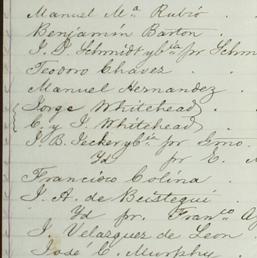 Manuel Mª Rubio . .
Benjamin Barton .
J. J. Schmidt y Cia pr Schm
Teodoro Chávez . .
Manuel Hernandez . .
Jorge Whitehead
C. y J. Whitehead
J. B. Jecker y Cª. pr Gmo.
Yd pr E.
Francisco Colina .
J. A. de Beistegui
Yd pr. Franco
J. Velazquez de Leon
José C. Murphy . .